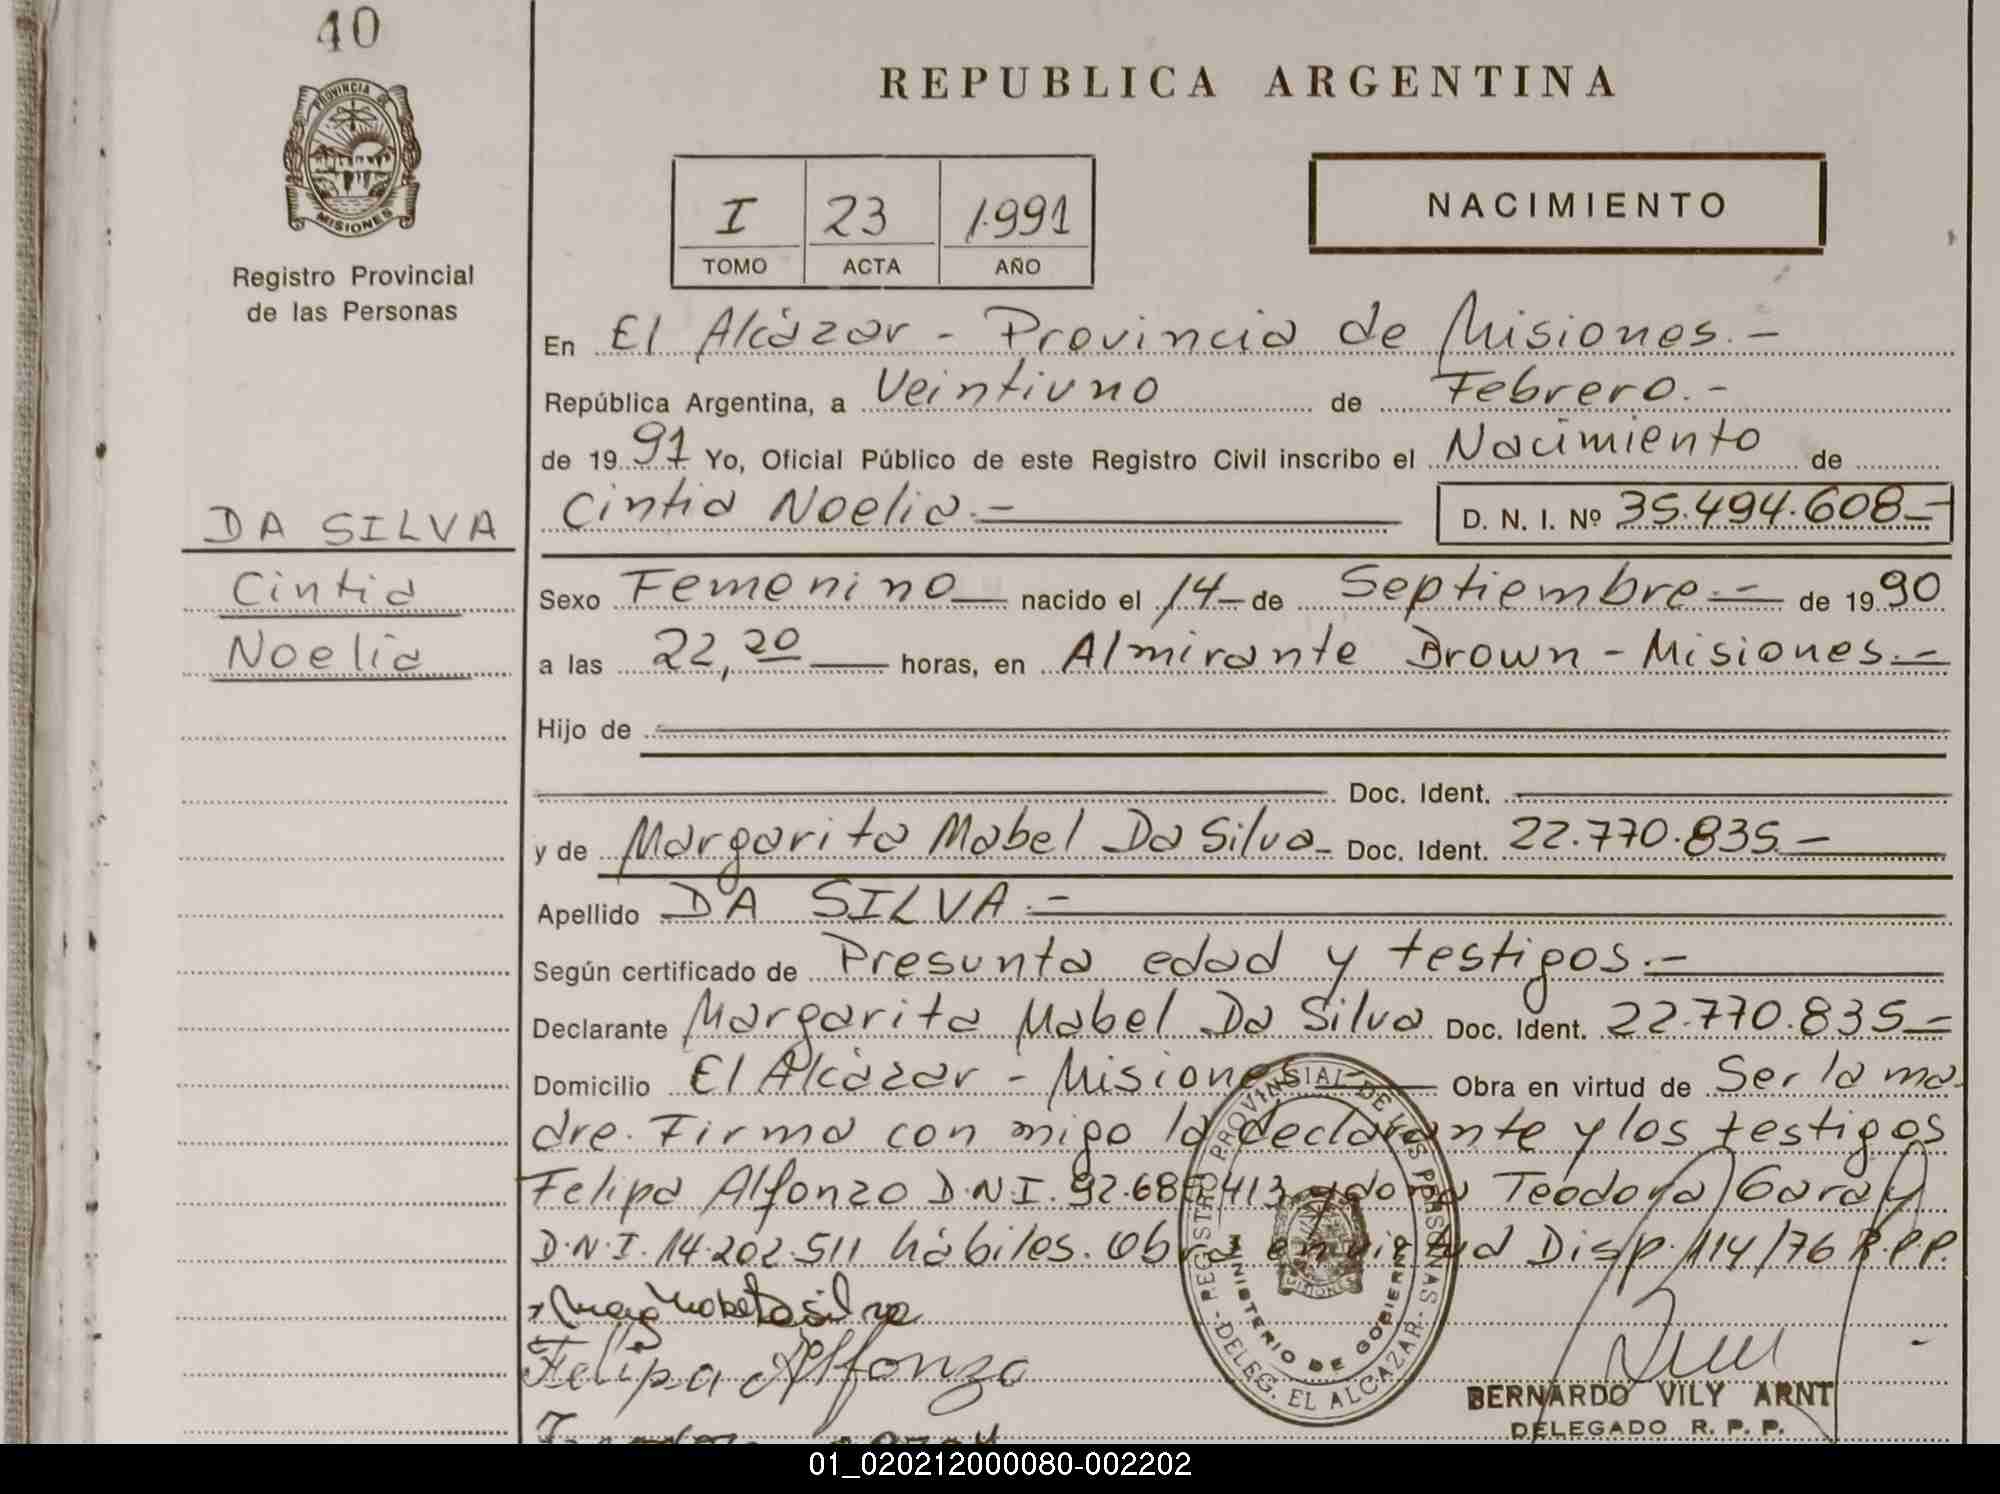 40
PROVINCIA DE
MISIONES
Registro Provincial
de las Personas
DA SILVA
Cintia
Noelia
REPUBLICA ARGENTINA
I 23 1.991
TOMO ACTA AÑO
NACIMIENTO
En El Alcázar - Provincia de Misiones.-
República Argentina, a Veintiuno de Febrero.-
de 1991 Yo, Oficial Público de este Registro Civil inscribo el Nacimiento de
Cintia Noelia.- D. N. I. Nº 35.494.608-
Sexo Femenino nacido el 14- de Septiembre.- de 1990
a las 22,20 horas, en Almirante Brown - Misiones.-
Hijo de
Doc. Ident.
y de Margarita Mabel Da Silva- Doc. Ident. 22.770.835.-
Apellido DA SILVA.-
Según certificado de Presunta edad y testigos.-
Declarante Margarita Mabel Da Silva Doc. Ident. 22.770.835-
Domicilio El Alcázar - Misiones Obra en virtud de Ser la ma-
dre. Firma con migo la declarante y los testigos
Felipa Alfonzo D.N.I. 92.68 413 y doña Teodora Garay
D.N.I. 14.202.511 hábiles. Obra en virtud Disp. 114/76 R.P.P.
Mabel Da silva
Felipa Alfonzo
REGISTRO PROVINSIAL DE LAS PERSONAS
MINISTERIO DE GOBIERNO
-DELEG. EL ALCAZAR-
BERNARDO VILY ARNT
DELEGADO R. P. P.
01_020212000080-002202